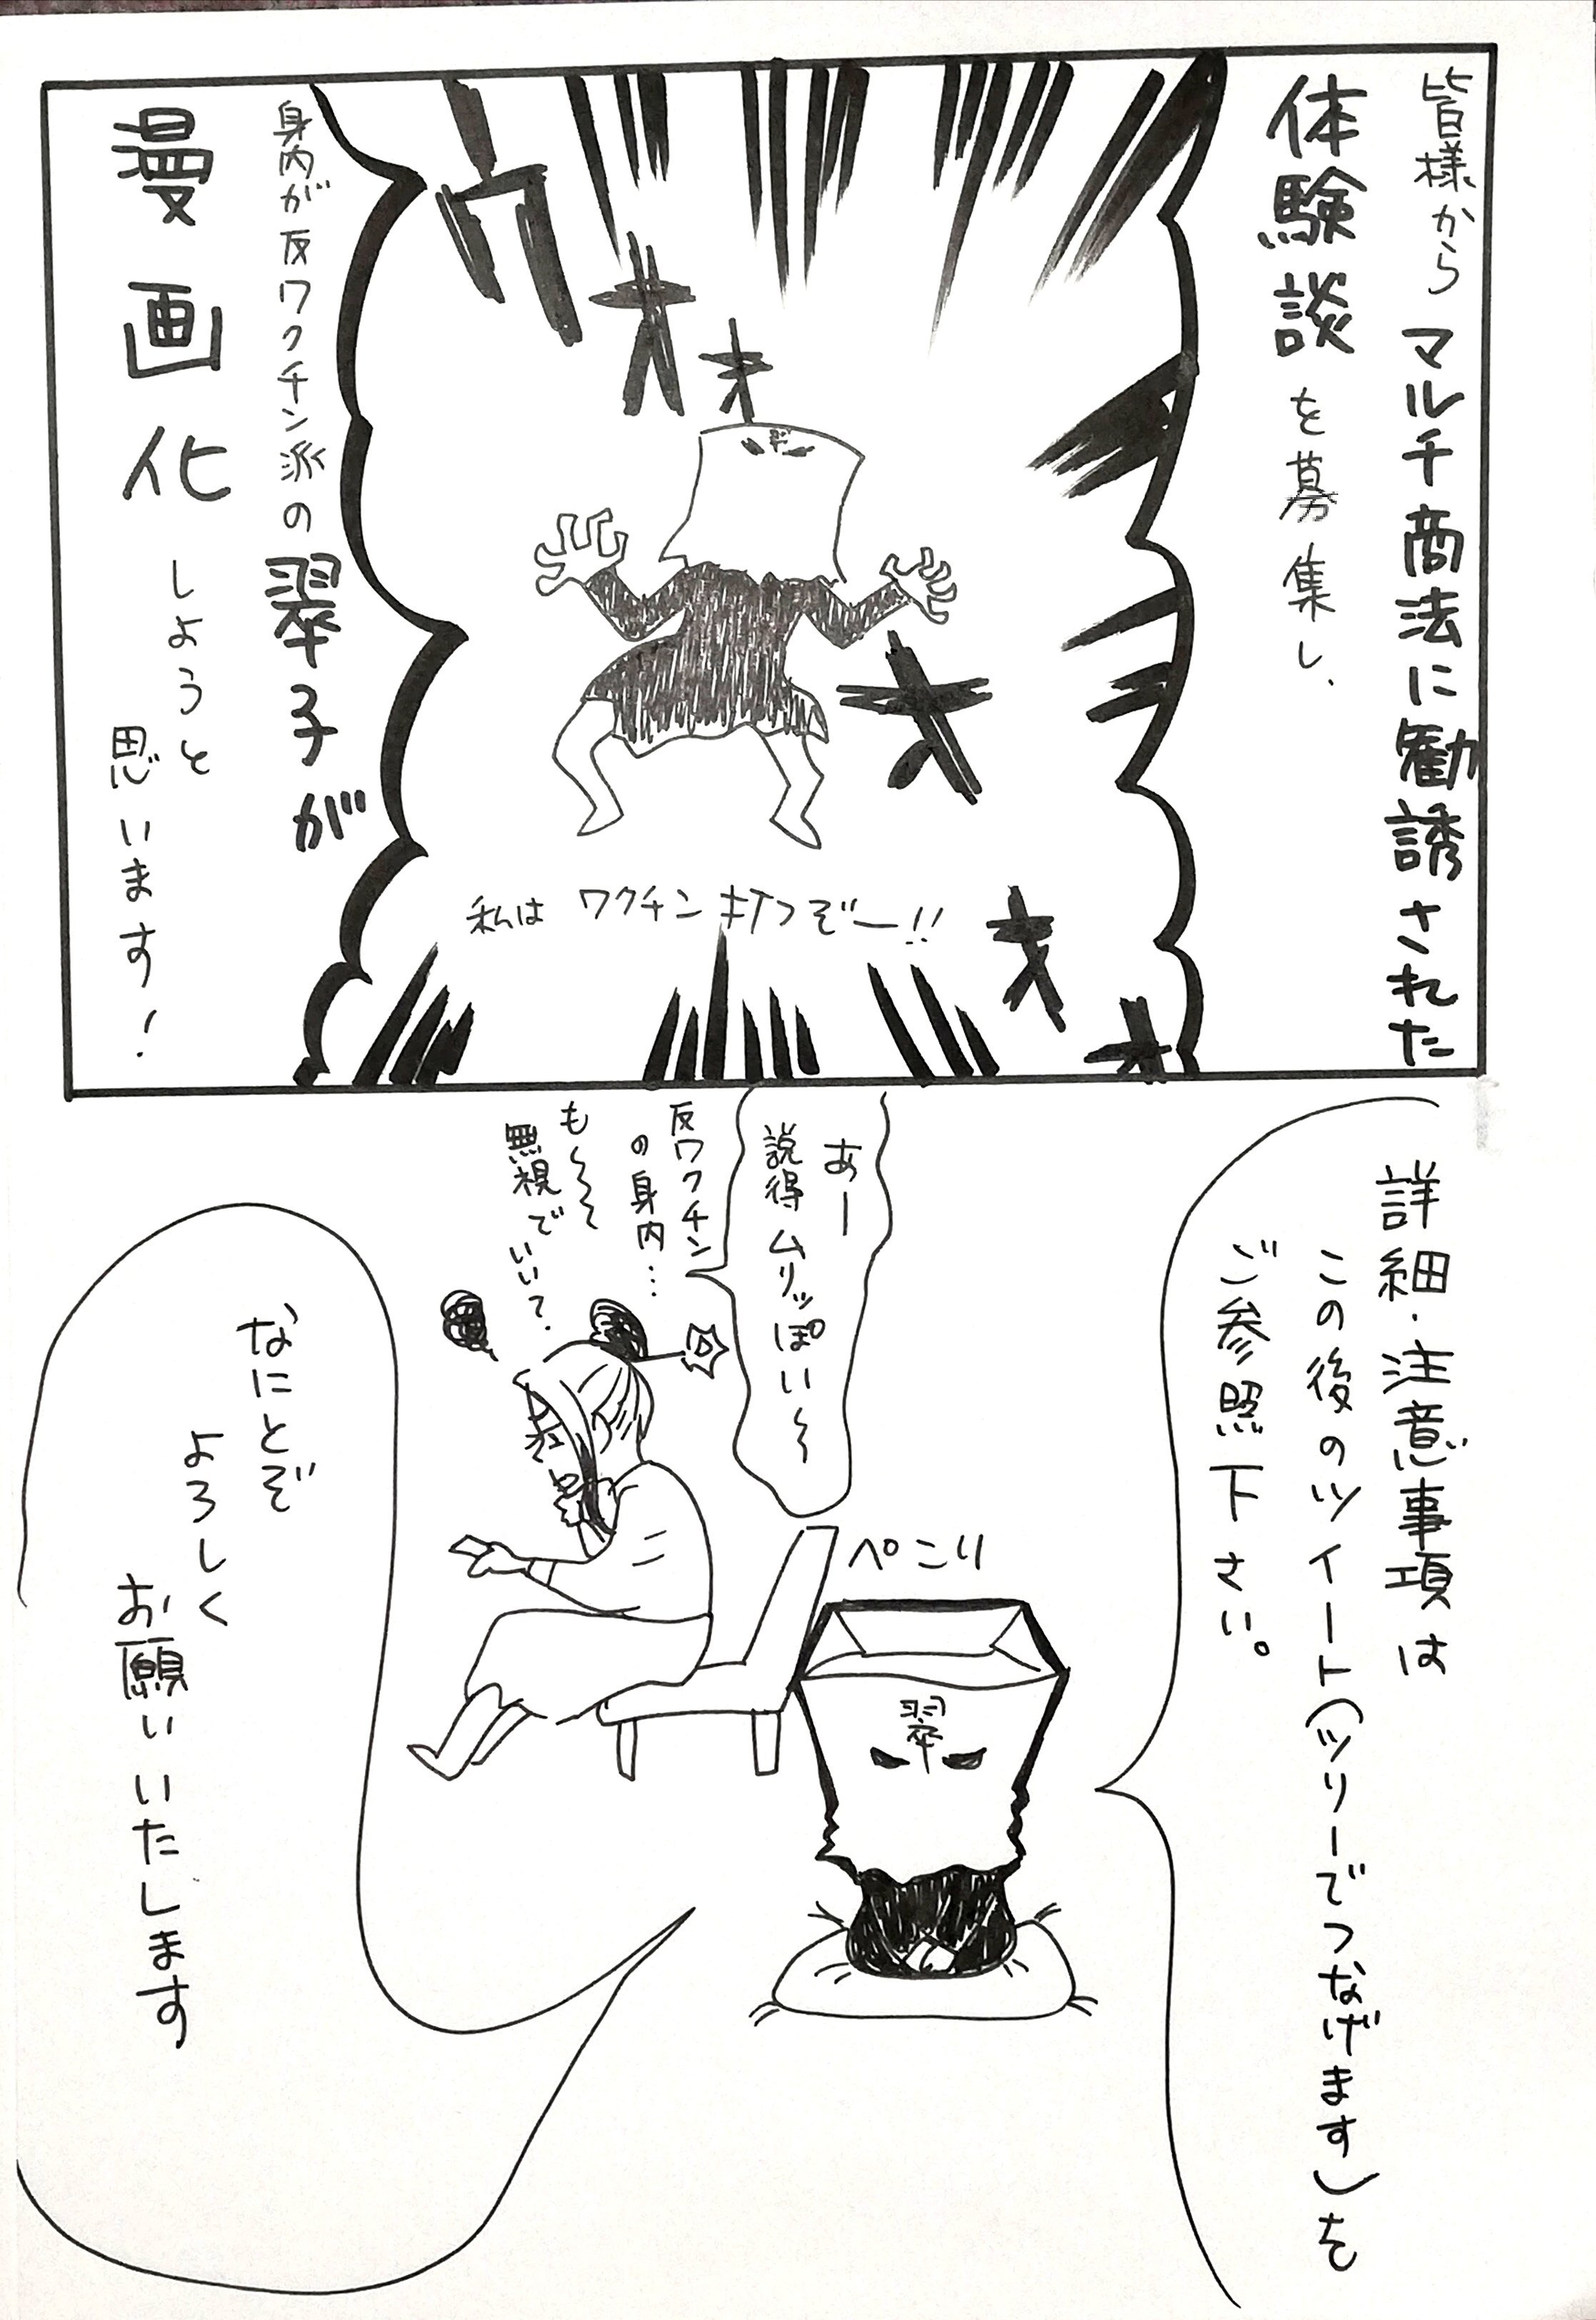 皆様から マルチ商法に勧誘された
体験談を募集し、
ウオオ
オオオ
私はワクチン打つぞー!!
身内が反ワクチン派の翠子が
漫画化
しようと
思います!
詳細・注意事項は
この後のツイート(ツリーでつなげます)を
ご参照下さい。
ぺこり
翠
あー
説得ムリッぽい〜
反ワクチン
の身内…
も〜〜〜
無視でいいて.
なにとぞ
よろしく
お願いいたします